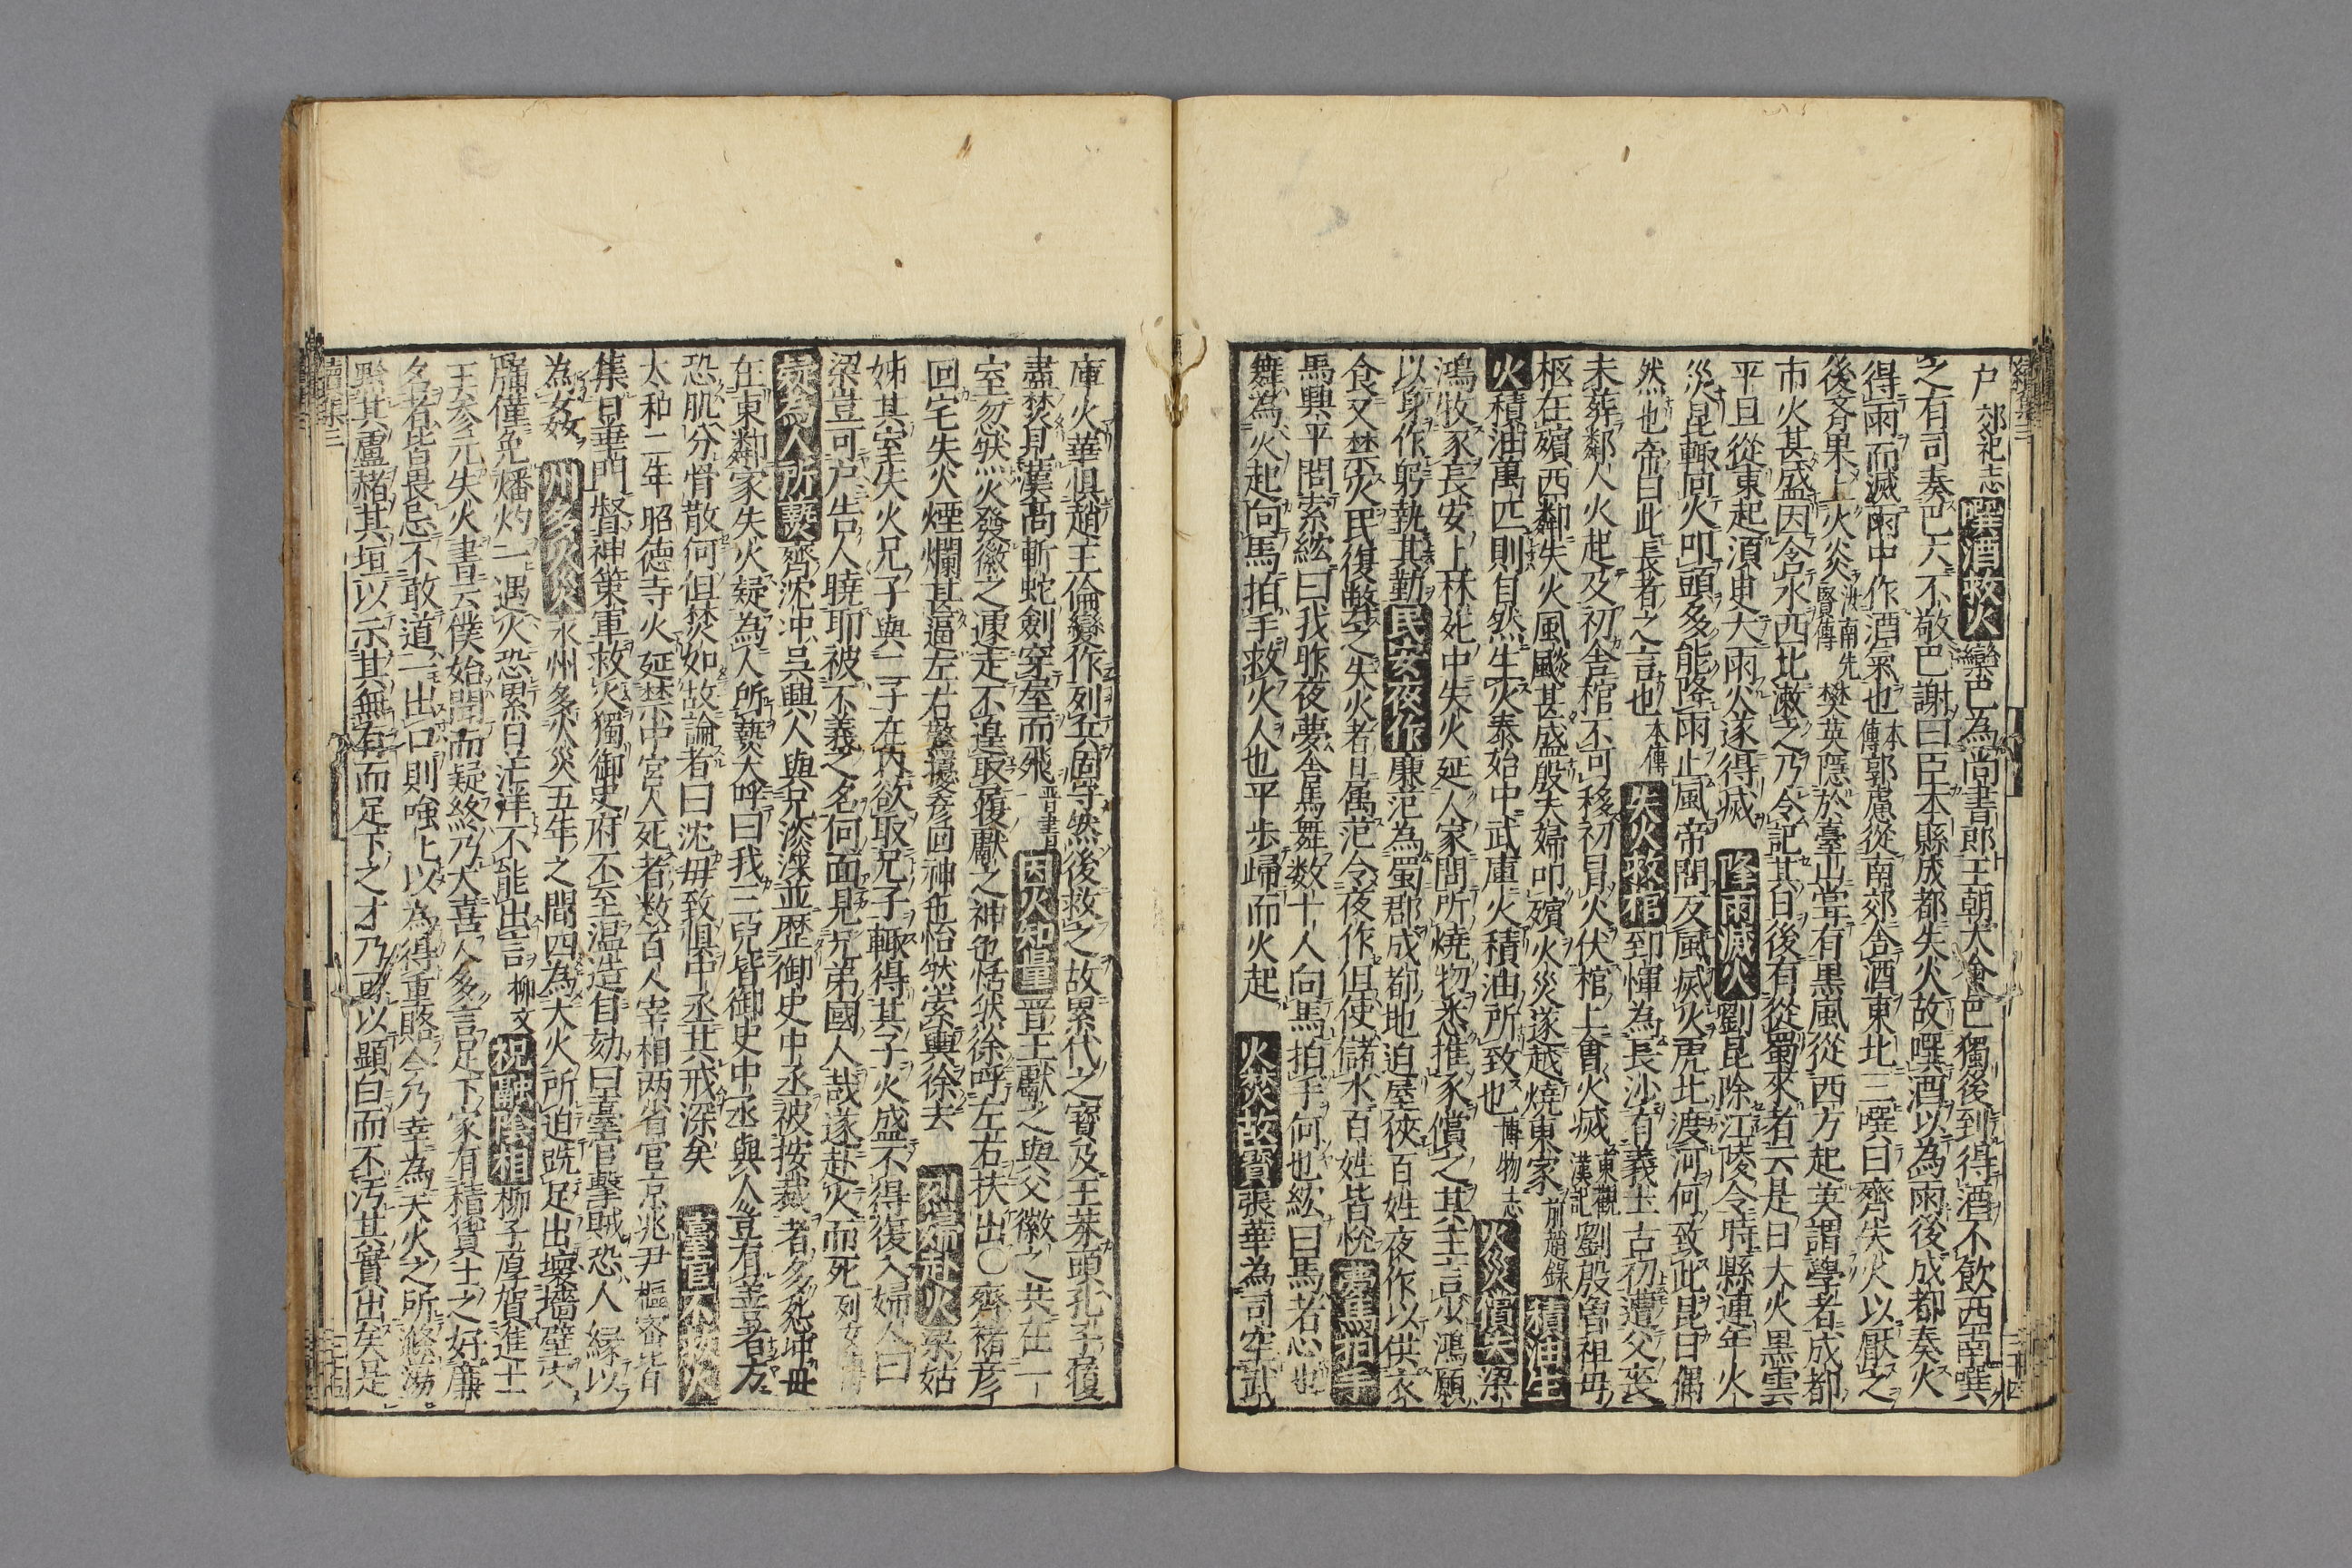 户 郊祀志 噀酒救火 欒巴為尚書郎正朝大會巴獨後到得酒不飲西南噀
之有司奏巴大不敬巴謝曰臣本縣成都失火故噀酒以為雨後成都奏火
得雨而滅雨中作酒氣也 本傳 郭憲從南郊含酒東北三噀曰齊失火以厭之
後齊果上火災 汝南先賢傳 樊英隱於壺山嘗有黒風從西方起英謂學者成都
市火甚盛因含水西北漱之乃令記其日後有從蜀来者云是日大火黒雲
平旦從東起須臾大雨火遂得滅 降雨滅火 劉昆除江陵令時縣連年火
災昆輙向火叩頭多能降雨止風帝問反風滅火虎北渡河何致此昆曰偶
然也帝曰此長者之言也 本傳 失火救棺 郅惲為長沙有義士古初遭父喪
未葬鄰人火起及初舍棺不可移初冒火伏棺上會火滅 東觀漢記 劉殷曾祖母
柩在殯西鄰失火風飈甚盛殷夫婦叩殯火災遂越燒東家 前趙錄 積油生
火 積油萬匹則自然生火泰始中武庫火積油所致也 博物志 火災償失 梁
鴻牧豕長安上林苑中失火延人家問所燒物悉推豕償之其主言少鴻願
以身作躬執其勤 民安夜作 廉范為蜀郡成都地迫屋俠百姓夜作以供衣
食又禁火民復蔽之失火者日属范令夜作但使儲水百姓皆悅 夢馬拍手
馬興平問索紞曰我昨夜夢舍馬舞数十人向馬拍手何也紞曰馬者忩也
舞為火起向馬拍手救火人也平歩歸而火起 火焚故寳 張華為司空武
庫火華惧趙王倫變作列兵固守然後救之故累代之寳及王莽頭孔子履
盡焚見漢高斬蛇劍穿屋而飛 晋書 因火知量 晋王獻之與父徽之共在一
室忽然火發徽之遽走不遑取履獻之神色恬然徐呼左右扶出〇齊褚彦
回宅失火煙爛甚逼左右驚擾彦回神色怡然索輿徐去 烈婦赴火 梁姑
姊其室失火兄子與二子在内欲取兄子輙得其子火盛不得復入婦人曰
梁豈可户告人曉耶被不義之名何面見兄弟國人哉遂赴火而死 列女傳
疑為人所爇 齊沈冲呉興人與兄淡深並歴御史中丞被按裁者多怨冲母
在東鄰家失火疑為人所爇大呼曰我三兒皆御史中丞與人豈有善者方
恐肌分骨散何但焚如故論者曰沈母致惧中丞其戒深矣 臺官不救火
太和二年昭德寺火延禁中宮人死者数百人宰相两省官京兆尹樞密皆
集日華門督神策軍救火獨御史府不至温造自劾曰臺官繫賊恐人緣以
為姦 州多火災 永州多火災五年之間四為大火所迫跣足出壞墻壁穴
牖僅免燔灼一遇火恐累日茫洋不能出言 柳文 祝融陰相 柳子厚賀進士
王参元失火書云僕始聞而疑終乃大喜人多言足下家有積貨士之好廉
名者皆畏忌不敢道一出口則嗤以為得重賂今乃幸為天火之所滌盪
黔其廬赭其垣以示其無有而足下之才乃可以顯白而不汚其實出矣是